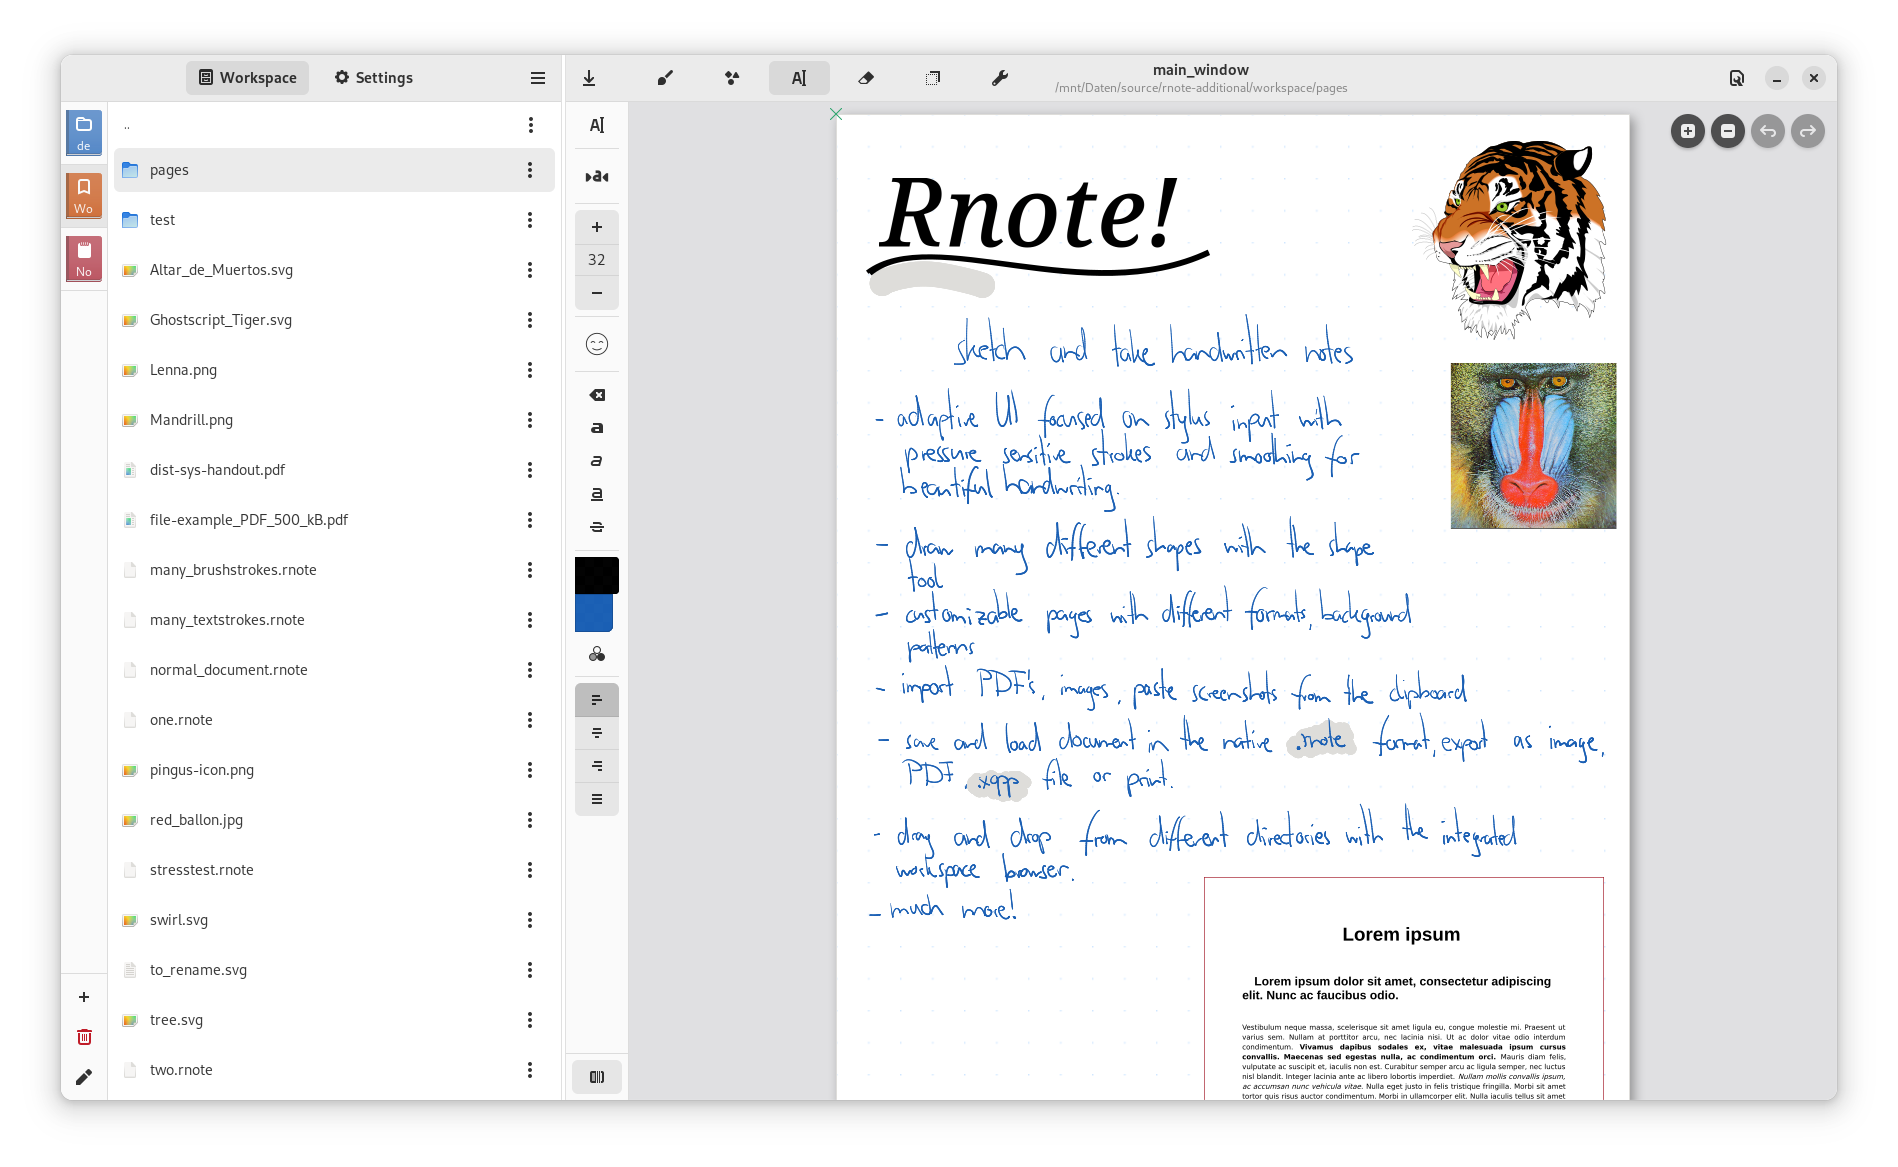 Workspace
Settings
main_window
/mnt/Daten/source/rnote-additional/workspace/pages
de
Wo
No
..
pages
test
Altar_de_Muertos.svg
Ghostscript_Tiger.svg
Lenna.png
Mandrill.png
dist-sys-handout.pdf
file-example_PDF_500_kB.pdf
many_brushstrokes.rnote
many_textstrokes.rnote
normal_document.rnote
one.rnote
pingus-icon.png
red_ballon.jpg
stresstest.rnote
swirl.svg
to_rename.svg
tree.svg
two.rnote
32
Rnote!
sketch and take handwritten notes
- adaptive UI focused on stylus input with
pressure sensitive strokes and smoothing for
beautiful handwriting.
- draw many different shapes with the shape
tool
- customizable pages with different formats, background
patterns
- import PDF's, images, paste screenshots from the clipboard
- save and load document in the native .rnote format, export as image,
PDF, .xopp file or print.
- drag and drop from different directories with the integrated
workspace browser.
- much more!
Lorem ipsum
Lorem ipsum dolor sit amet, consectetur adipiscing
elit. Nunc ac faucibus odio.
Vestibulum neque massa, scelerisque sit amet ligula eu, congue molestie mi. Praesent ut
varius sem. Nullam at porttitor arcu, nec lacinia nisi. Ut ac dolor vitae odio interdum
condimentum. Vivamus dapibus sodales ex, vitae malesuada ipsum cursus
convallis. Maecenas sed egestas nulla, ac condimentum orci. Mauris diam felis,
vulputate ac suscipit et, iaculis non est. Curabitur semper arcu ac ligula semper, nec luctus
nisl blandit. Integer lacinia ante ac libero lobortis imperdiet. Nullam mollis convallis ipsum,
ac accumsan nunc vehicula vitae. Nulla eget justo in felis tristique fringilla. Morbi sit amet
tortor quis risus auctor condimentum. Morbi in ullamcorper elit. Nulla iaculis tellus sit amet